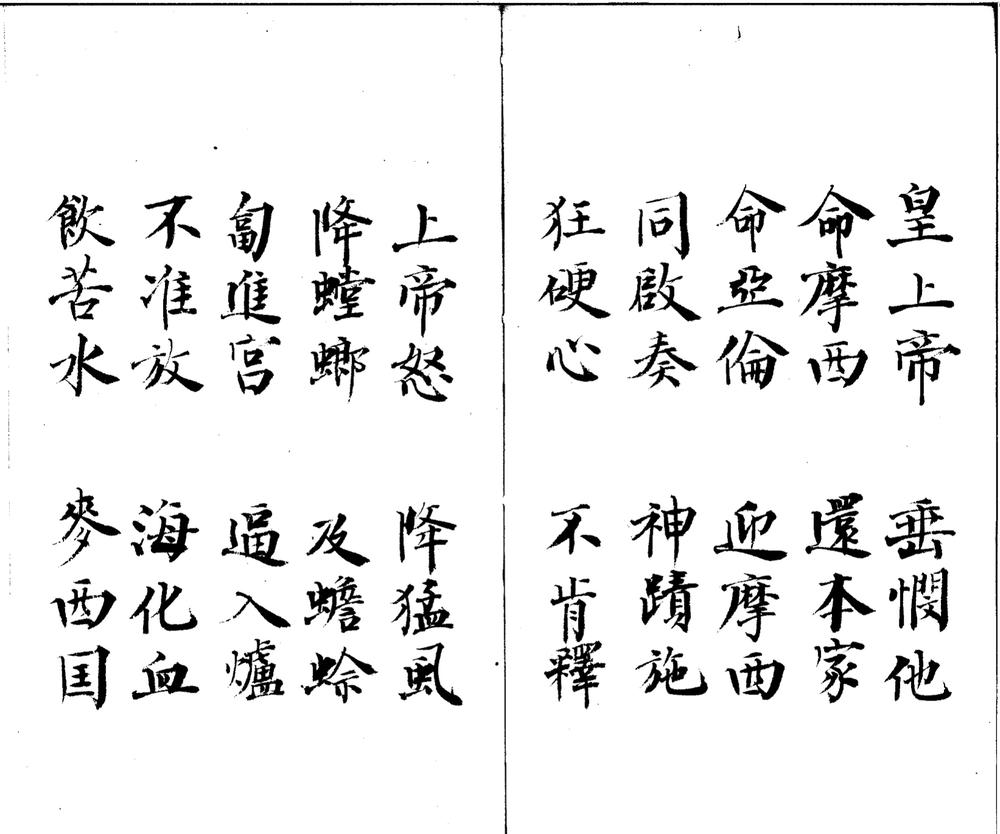 皇上帝　垂憫他
命摩西　還本家
命亞倫　迎摩西
同啟奏　神蹟施
狂硬心　不肯釋
上帝怒　降猛虱
降螳螂　及蟾蜍
匐進宮　逼入爐
不准放　海化血
飲苦水　麥西囯